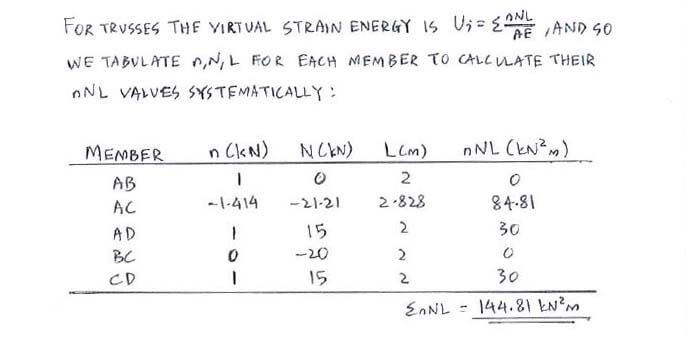 FOR TRUSSES THE VIRTUAL STRAIN ENERGY IS Ui = Σ nNL/AE , AND SO
WE TABULATE n,N,L FOR EACH MEMBER TO CALCULATE THEIR
nNL VALUES SYSTEMATICALLY :
MEMBER n (kN) N (kN) L(m) nNL (kN²m)
AB 1 0 2 0
AC -1.414 -21.21 2.828 84.81
AD 1 15 2 30
BC 0 -20 2 0
CD 1 15 2 30
ΣnNL = 144.81 kN²m